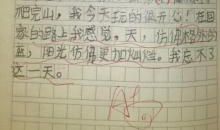 爬完山，我今天玩的很开心！在回
家的路上我感觉。天，仿佛格外的
蓝，阳光仿佛更加灿烂。我忘不了
这一天。